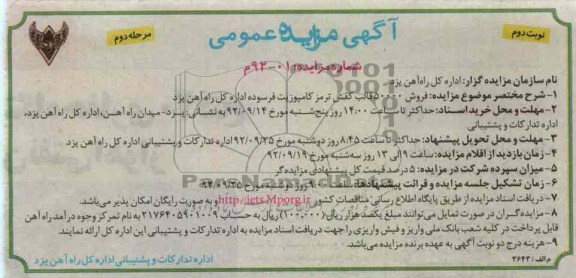 نوبت دوم
آگهی مزایده عمومی
مرحله دوم
شماره مزایده: ۰۱-۹۲م
نام سازمان مزایده گزار: اداره کل راه آهن یزد
۱- شرح مختصر موضوع مزایده: فروش ۵۰۰۰۰ قالب کفش ترمز کامپوزیت فرسوده اداره کل راه آهن یزد
۲- مهلت و محل خرید اسناد: حداکثر تا ساعت ۱۴:۰۰ روز پنج شنبه مورخ ۹۲/۰۹/۱۴ به نشانی: یزد- میدان راه آهن، اداره کل راه آهن یزد،
اداره تدارکات و پشتیبانی
۳- مهلت و محل تحویل پیشنهاد: حداکثر تا ساعت ۸:۴۵ روز دوشنبه مورخ ۹۲/۰۹/۲۵ اداره تدارکات و پشتیبانی اداره کل راه آهن یزد
۴- زمان بازدید از اقلام مزایده: ساعت ۹ الی ۱۳ روز سه شنبه مورخ ۹۲/۰۹/۱۹
۵- میزان سپرده شرکت در مزایده: ۵ درصد قیمت کل پیشنهادی مزایده گر
۶- زمان تشکیل جلسه مزایده و قرائت پیشنهادها: ساعت ۹:۰۰ روز دوشنبه مورخ ۹۲/۰۹/۲۵
۷- دریافت اسناد مزایده از طریق پایگاه اطلاع رسانی مناقصات کشور http://iets.Mporg.ir و به صورت رایگان امکان پذیر می باشد.
۸- مزایده گران در صورت تمایل می توانند مبلغ یکصد هزار ریال (۱۰۰,۰۰۰) ریال به حساب ۲۱۷۶۴۰۵۹۰۱۰۰۹ به نام تمرکز وجوه درآمد راه آهن
قابل پرداخت در کلیه شعب بانک ملی واریز و فیش واریزی را جهت دریافت اسناد مزایده به اداره تدارکات و پشتیبانی این اداره کل ارائه نمایند.
۹- هزینه درج دو نوبت آگهی به عهده برنده مزایده می باشد.
م الف/ ۳۶۴۳
اداره تدارکات و پشتیبانی اداره کل راه آهن یزد